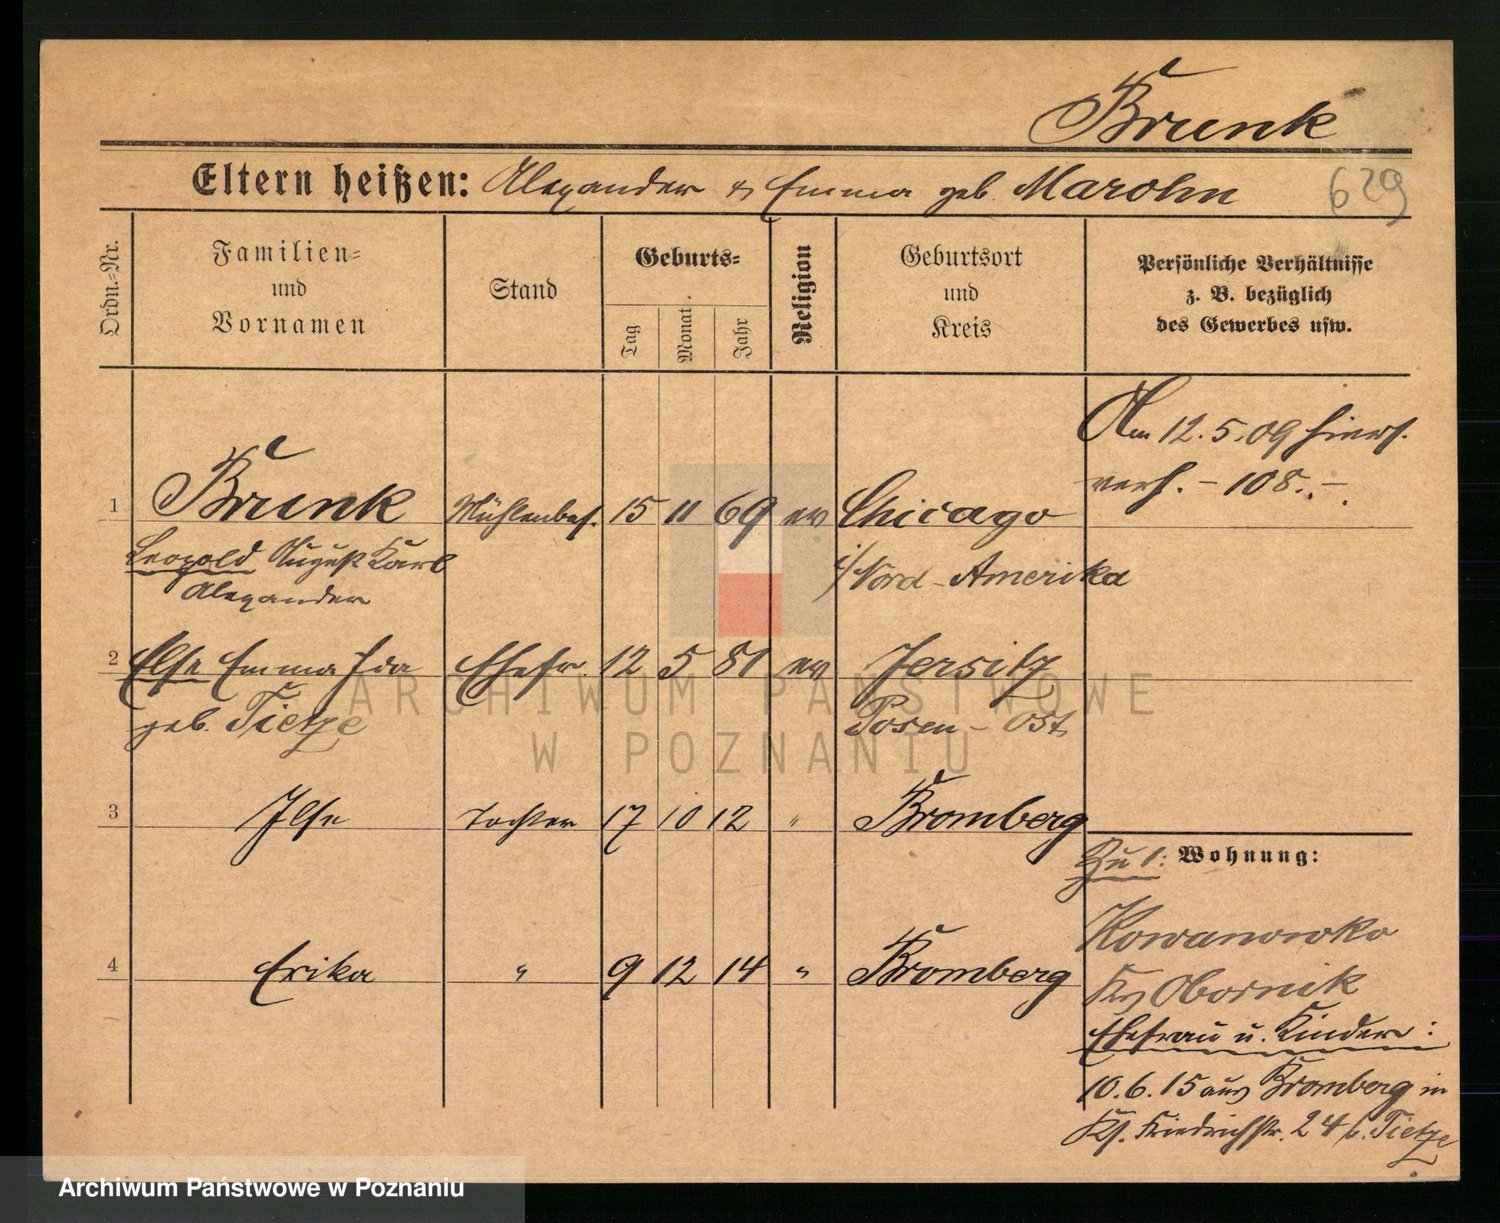 Brunk
Eltern heißen: Alexander & Emma geb. Marohn
629
Ordn.-Nr.
Familien-
und
Vornamen
Stand
Geburts-
Tag
Monat
Jahr
Religion
Geburtsort
und
Kreis
Persönliche Verhältnisse
z. B. bezüglich
des Gewerbes usw.
Am 12.5.09 hiers.
verh. - 108. -.
1 Brunk Mühlenbes. 15 11 69 ev Chicago
Leopold August Karl
Alexander
i/Nord-Amerika
2 Else Emma Ida Ehefr. 12 5 81 ev Jersitz
geb. Tietze
Posen-Ost
3 Ilse Tochter 17 10 12 " Bromberg
Zu 1: Wohnung:
Kowanowko
4 Erika " 9 12 14 " Bromberg
Kr Obornik
Ehefrau u. Kinder:
10.6.15 aus Bromberg in
Friedrichstr. 24 b. Tietze
ARCHIWUM PAŃSTWOWE
W POZNANIU
Archiwum Państwowe w Poznaniu